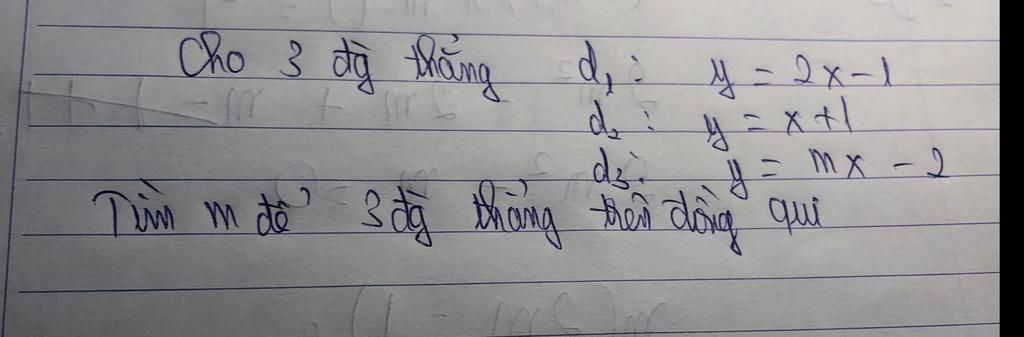 Cho 3 đg̀ thẳng d₁: y = 2x - 1
d₂: y = x + 1
d₃: y = mx - 2
Tìm m để 3 đg̀ thẳng trên đồng qui